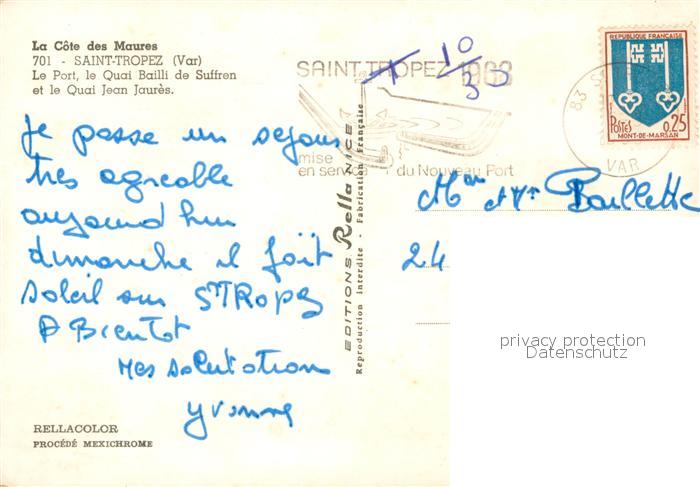 La Côte des Maures
701 - SAINT-TROPEZ (Var)
Le Port, le Quai Bailli de Suffren
et le Quai Jean Jaurès.
Je passe un sejour
tres agreable
aujourd hui
dimanche il fait
soleil sur STTROPEZ
A Bientot
Mes salutations
yvonne
RELLACOLOR
PROCÉDÉ MEXICHROME
EDITIONS Rella NICE
Reproduction interdite - Fabrication Française
SAINT TROPEZ
mise
en service du Nouveau Port
10
30
83
VAR
RÉPUBLIQUE FRANÇAISE
POSTES 0,25
MONT-DE-MARSAN
24
privacy protection
Datenschutz